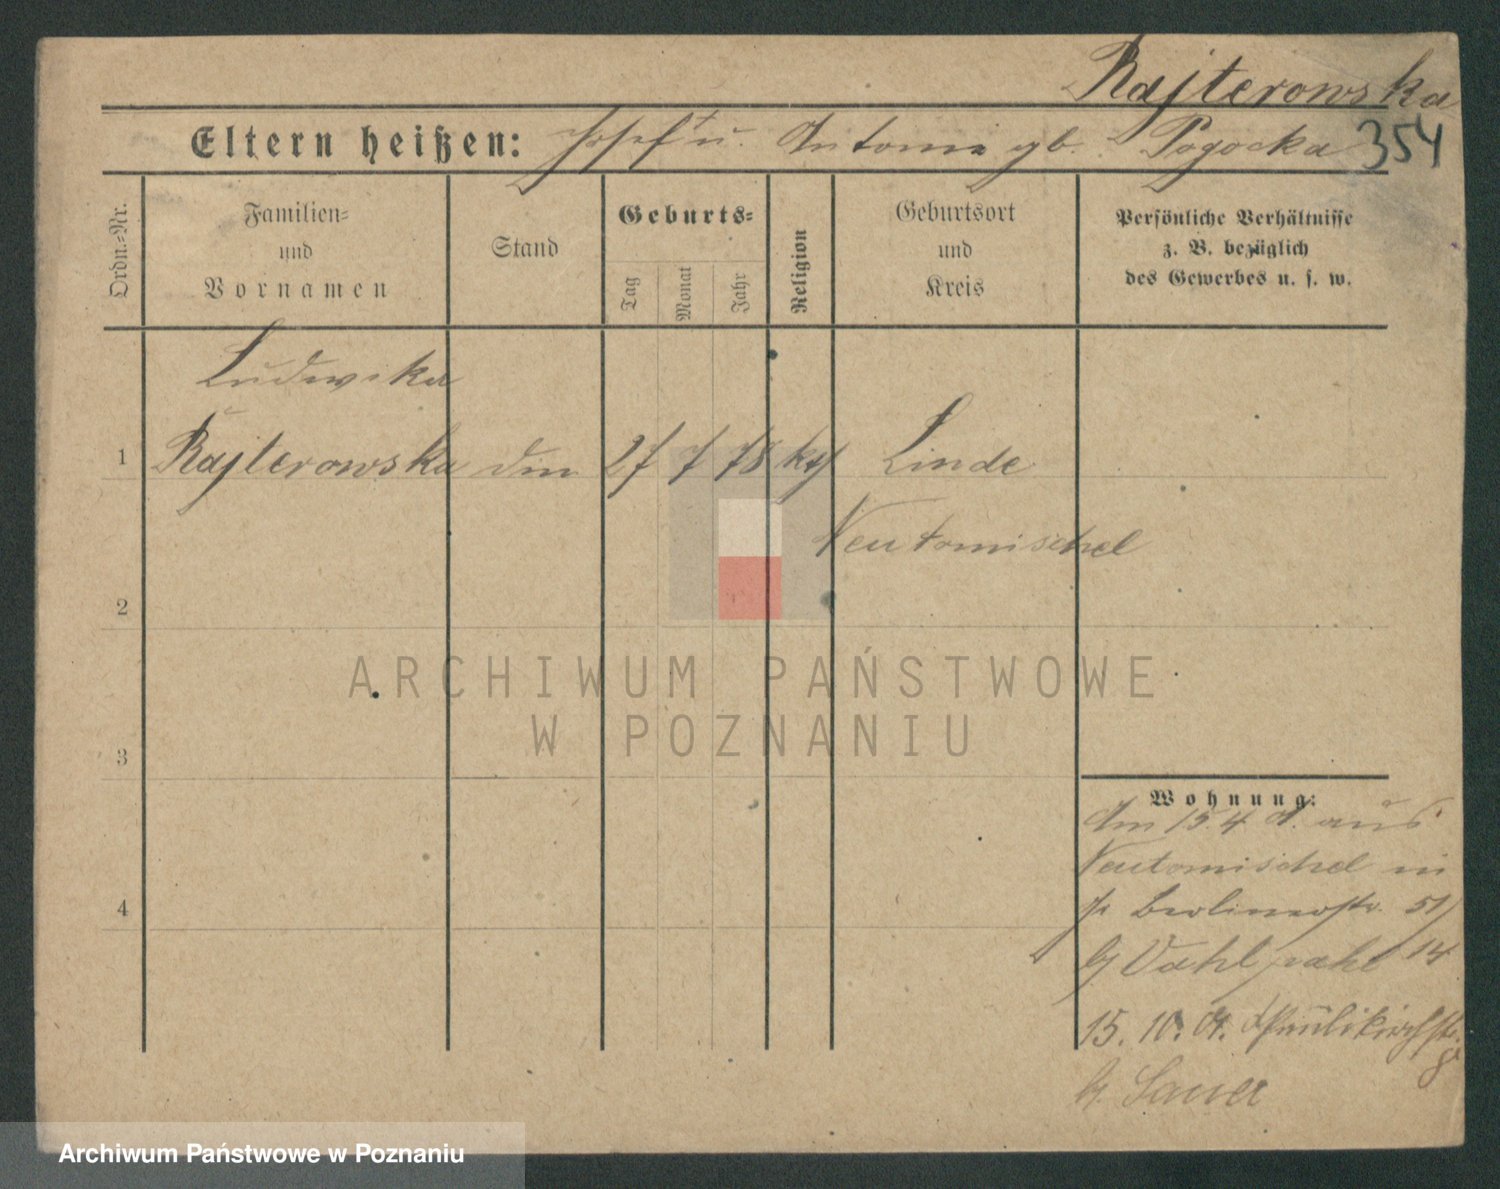 Rajterowska
Eltern heißen: Josef u. Antonie gb. Pogocka 354
Ordn.-Nr.
Familien-
und
Vornamen
Stand
Geburts-
Tag
Monat
Jahr
Religion
Geburtsort
und
Kreis
Persönliche Verhältnisse
z. B. bezüglich
des Gewerbes u. s. w.
Ludwika
1 Rajterowska din 27 7 78 kth Linde
Neutomischel
2
3
4
ARCHIWUM PAŃSTWOWE
W POZNANIU
Wohnung:
Am 15.4 01. aus
Neutomischel in
Berlinerstr. 51/
14
15. 10. 01. Paulikirchstr.
b. Sauer
Archiwum Państwowe w Poznaniu